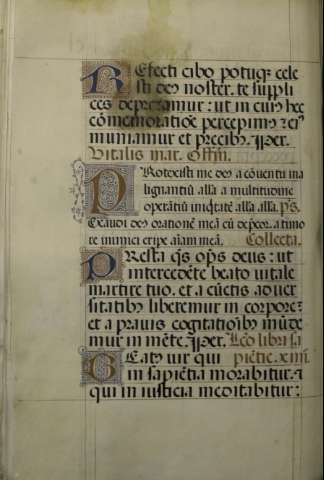 Refecti cibo potuq̄ʒ cele
sti deus noster. te suppli
ces deprecamur: ut in cuiꝰ hec
cōmemoratiōe percepimꝰ: eiꝰ
muniamur et precibꝰ. ꝑper.
Vitalis mar. Offm̄.
Protexisti me deꝰ a cōuentu ma
lignantiū all'a a multitudine
operātiū iniq̄tatē all'a all'a. p̄s.
Exaudi deꝰ orationē meā cū depcor. a timo
re inimici eripe aīam meā. Collecta.
Presta q̄s op̄s deus: ut
intercedēte beato uitale
martire tuo. et a cūctis aduer
sitatibꝰ liberemur in corpore:
et a prauis cogitatiōibꝰ mūde
mur in mēte. ꝑper. Leō libri sa
Beatꝰ uir qui piētie. xiiii.
in sapiētia morabitur. et
qui in iusticia meditabitur: